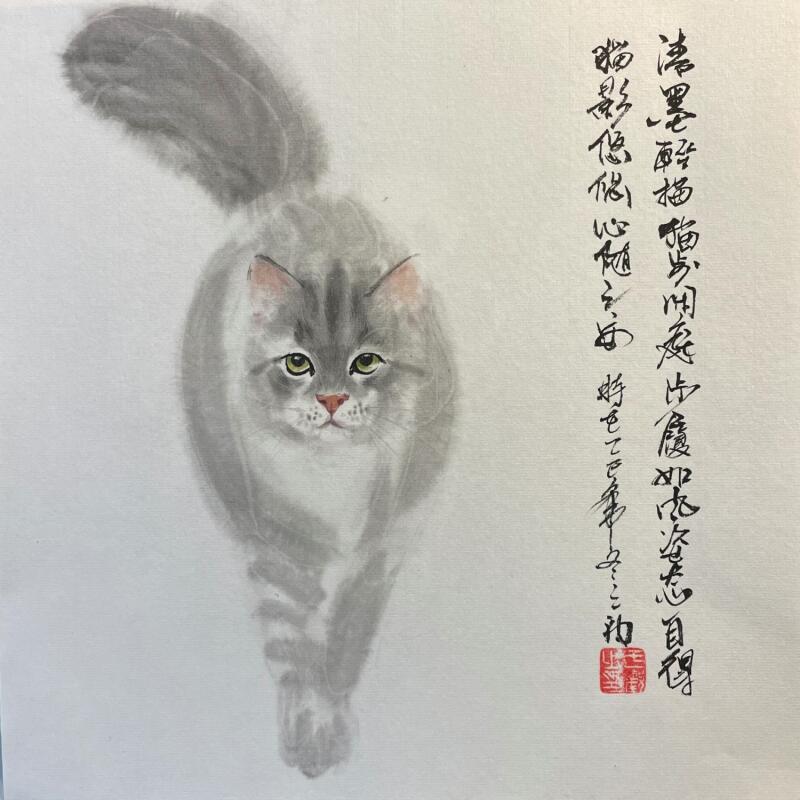 清墨轻描 猫步闲庭 步履如风 姿态自得
猫影悠悠 心随之安 时在乙巳年冬之初